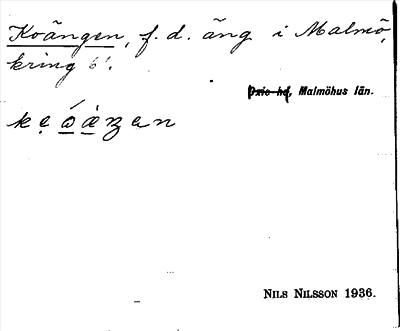 Koängen, f. d. äng i Malmö,
kring 6¹.
Oxie hd, Malmöhus län.
NILS NILSSON 1936.